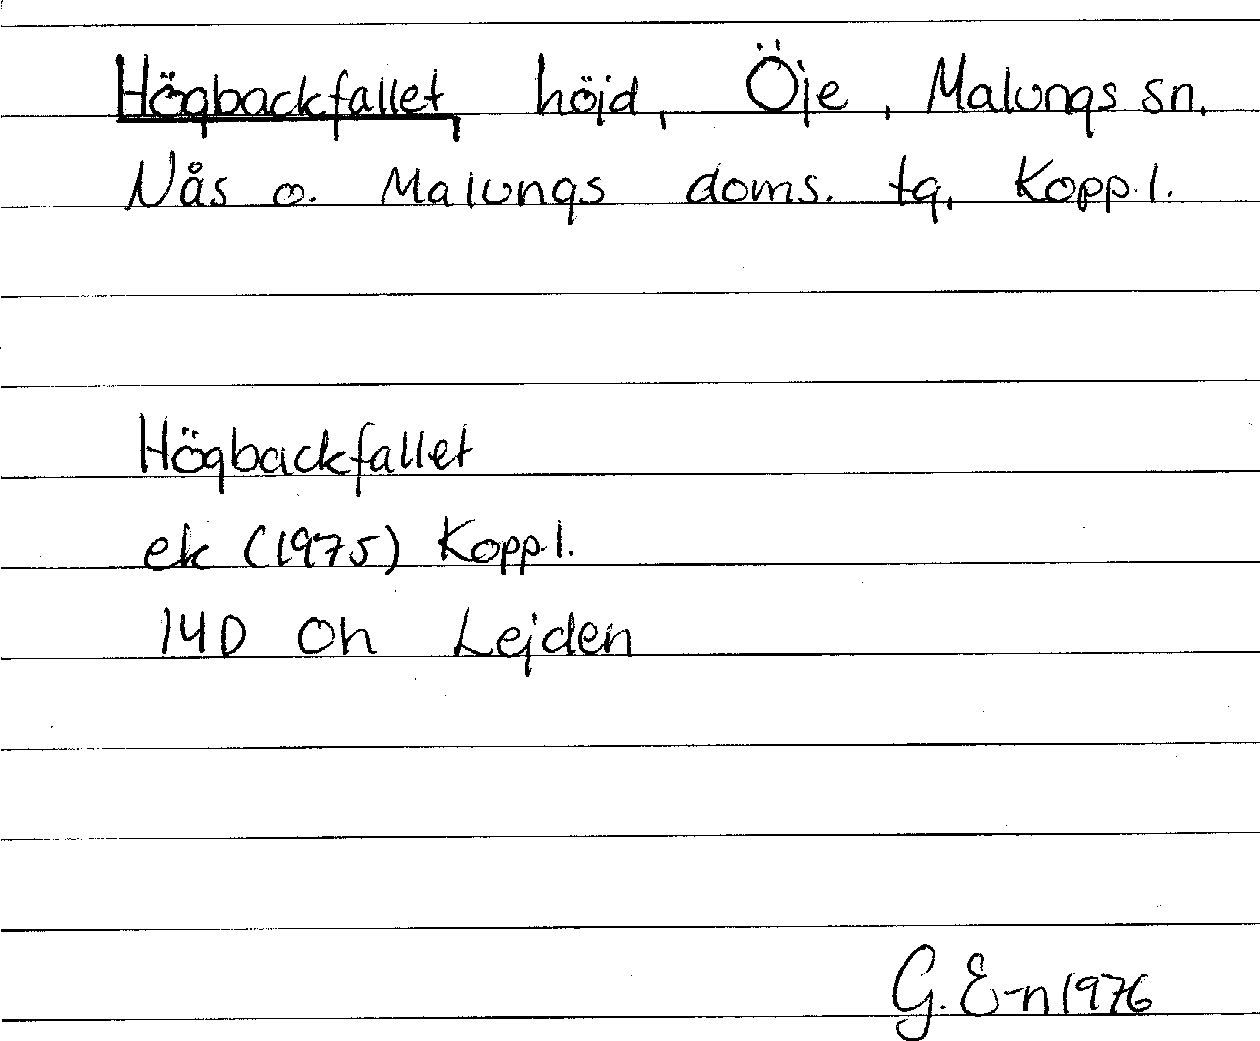 Högbackfallet, höjd, Öje, Malungs sn.
Nås o. Malungs doms. tg, Kopp.l.
Högbackfallet
ek (1975) Kopp.l.
14D Oh Lejden
G. E-n 1976